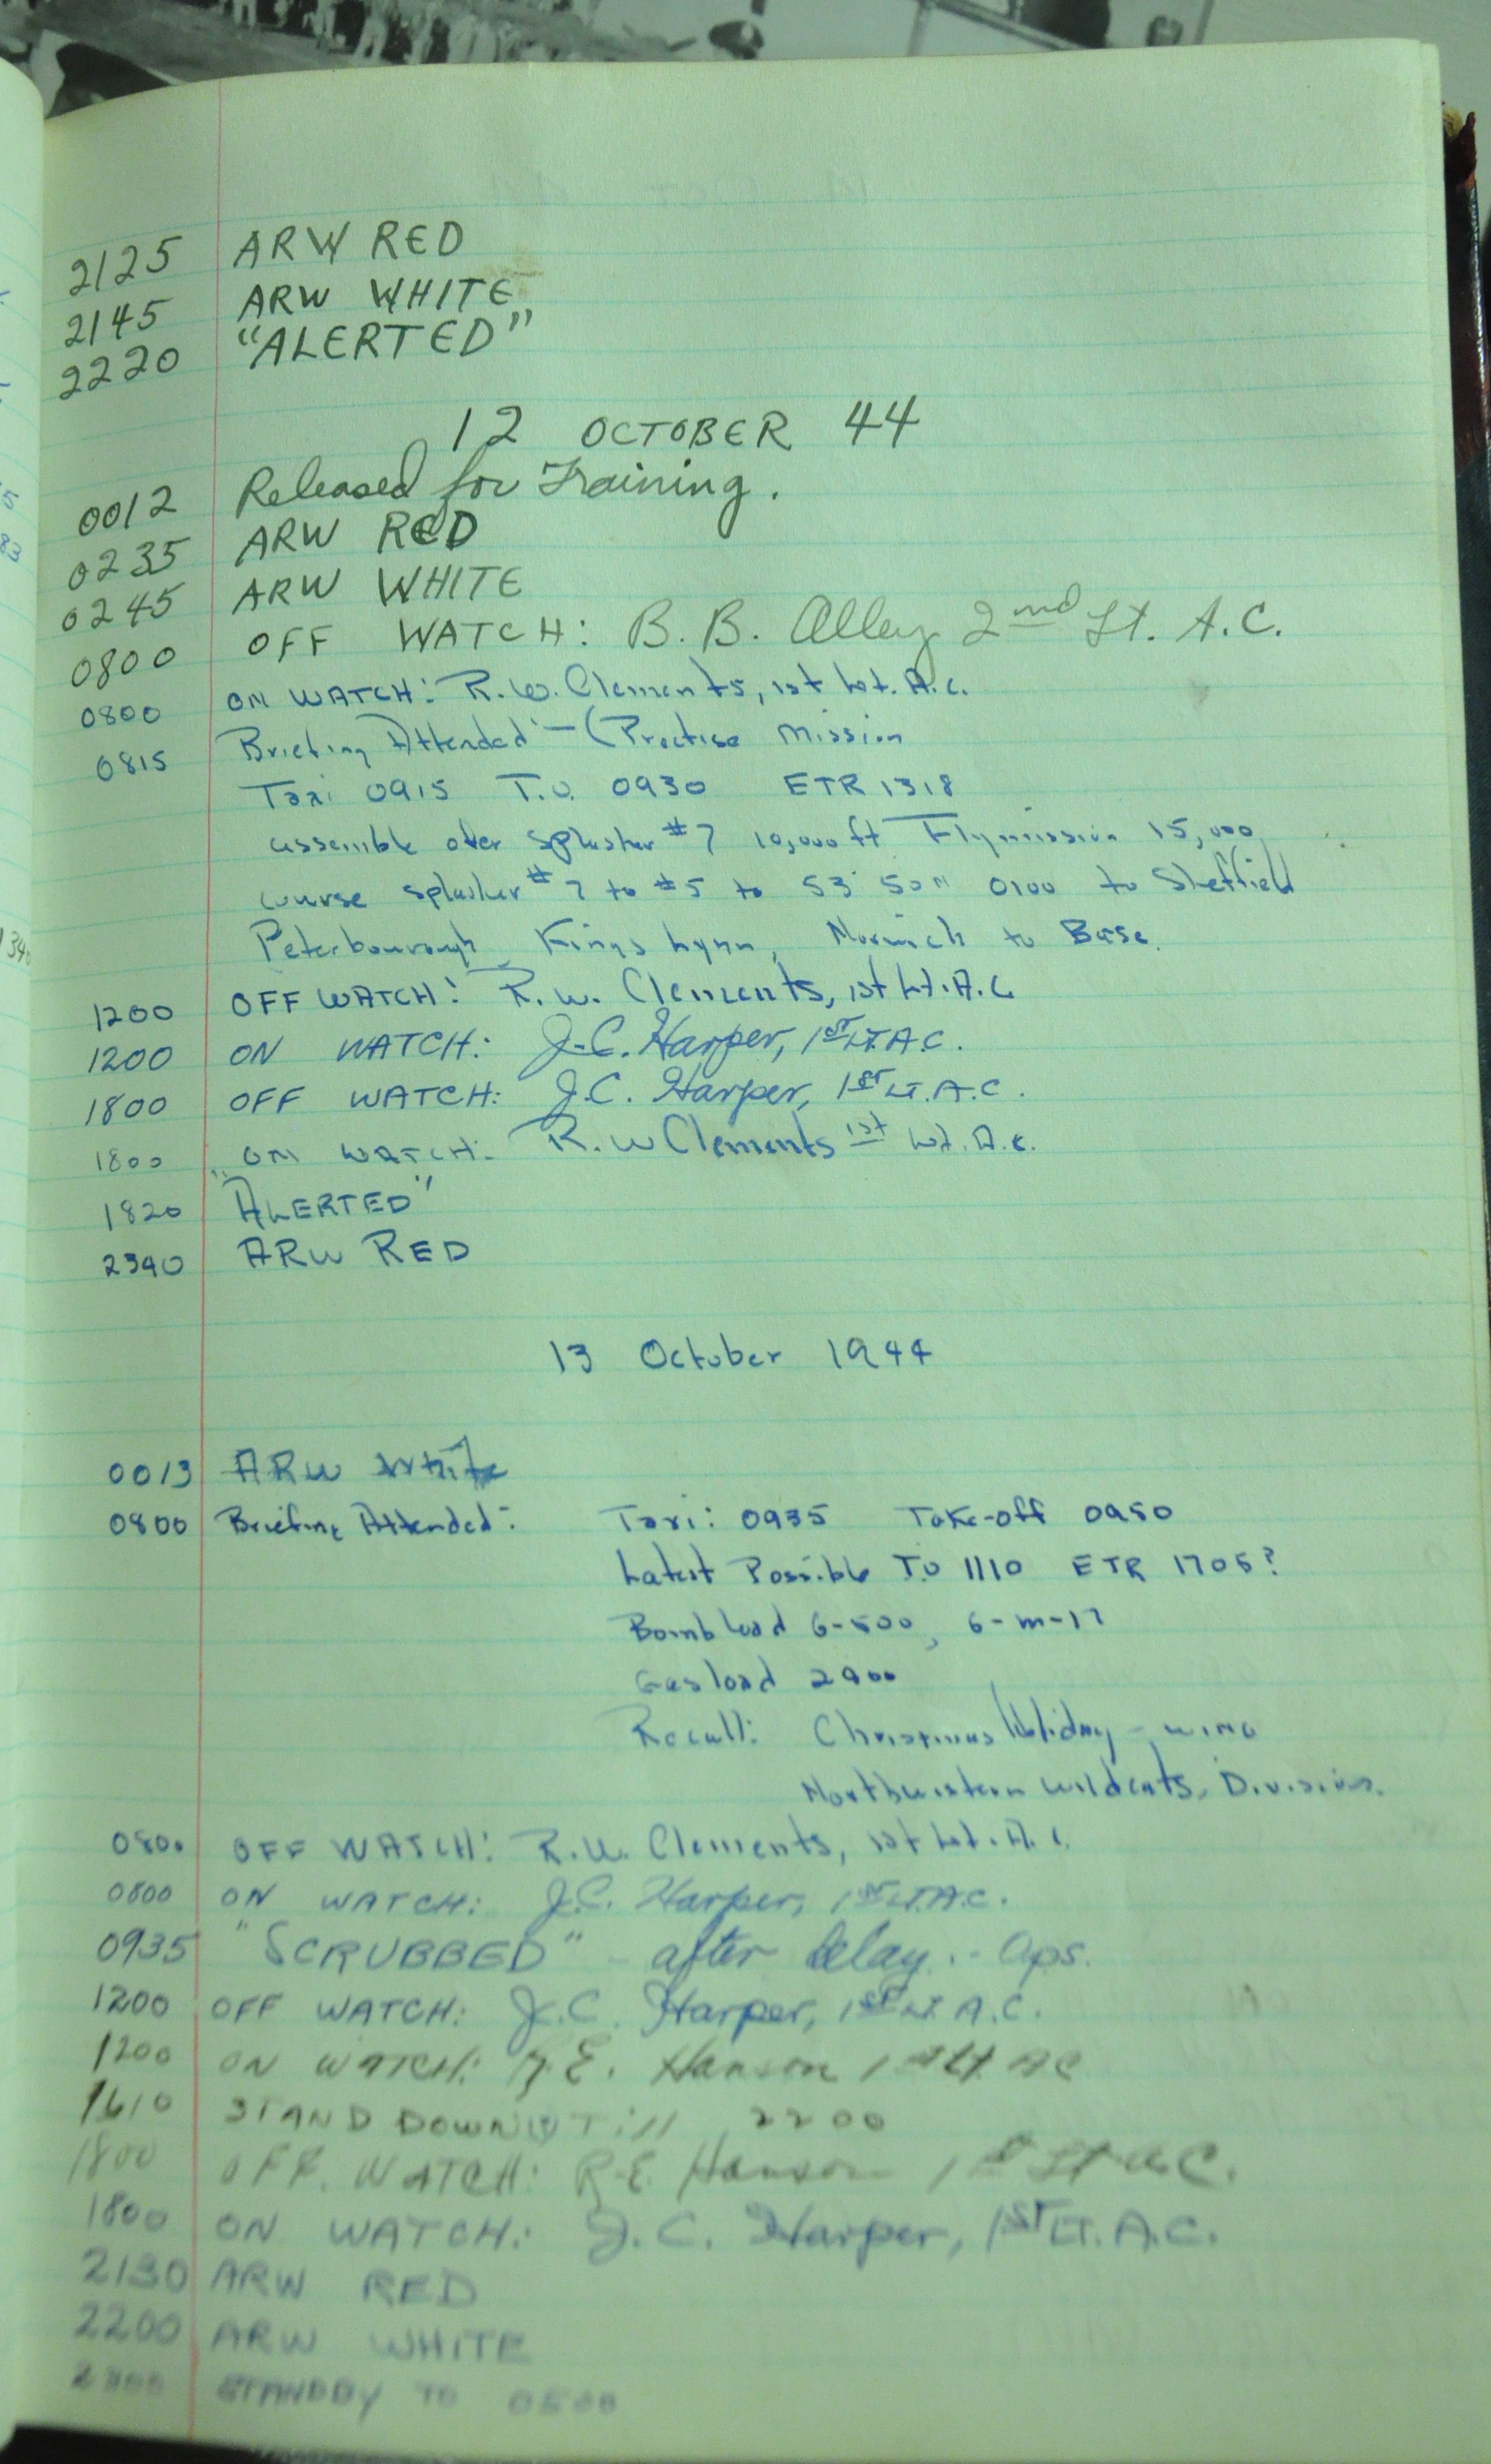 2125 ARW RED
2145 ARW WHITE
2220 "ALERTED"
12 OCTOBER 44
0012 Released for Training.
0235 ARW RED
0245 ARW WHITE
0800 OFF WATCH: B. B. Alley 2nd Lt. A.C.
0800 ON WATCH: R.W. Clements, 1st Lt. A.C.
0815 Briefing Attended - (Practise Mission
Taxi 0915 T.O. 0930 ETR 1318
assemble over splasher #7 10,000 ft Fly mission 15,000
course splasher #7 to #5 to 53 50N 0100 to Sheffield
Peterbourough, Kings Lynn, Norwich to Base.
1200 OFF WATCH: R.W. Clements, 1st Lt. A.C
1200 ON WATCH: J.C. Harper, 1ST LT. A.C.
1800 OFF WATCH: J.C. Harper, 1ST LT. A.C.
1800 ON WATCH: R.W Clements 1st Lt. A.C.
1820 "ALERTED"
2340 ARW RED
13 October 1944
0013 ARW White
0800 Briefing Attended: Taxi: 0935 Take-off 0950
Latest Possible T.O 1110 ETR 1705?
Bomb load 6-500, 6-M-17
Gas load 2900
Recall: Christmas Holiday - WING
Northwestern Wildcats, Division.
0800 OFF WATCH: R.W. Clements, 1st Lt. A.C.
0800 ON WATCH: J.C. Harper, 1ST LT. A.C.
0935 "SCRUBBED" - after delay.. Ops.
1200 OFF WATCH: J.C. Harper, 1ST LT. A.C.
1200 ON WATCH: R.E. Hanson 1st Lt. AC
1610 STAND DOWN Till 2200
1800 OFF. WATCH: R.E. Hanson 1st Lt a.C.
1800 ON WATCH: J.C. Harper, 1ST LT. A.C.
2130 ARW RED
2200 ARW WHITE
STANDBY TO